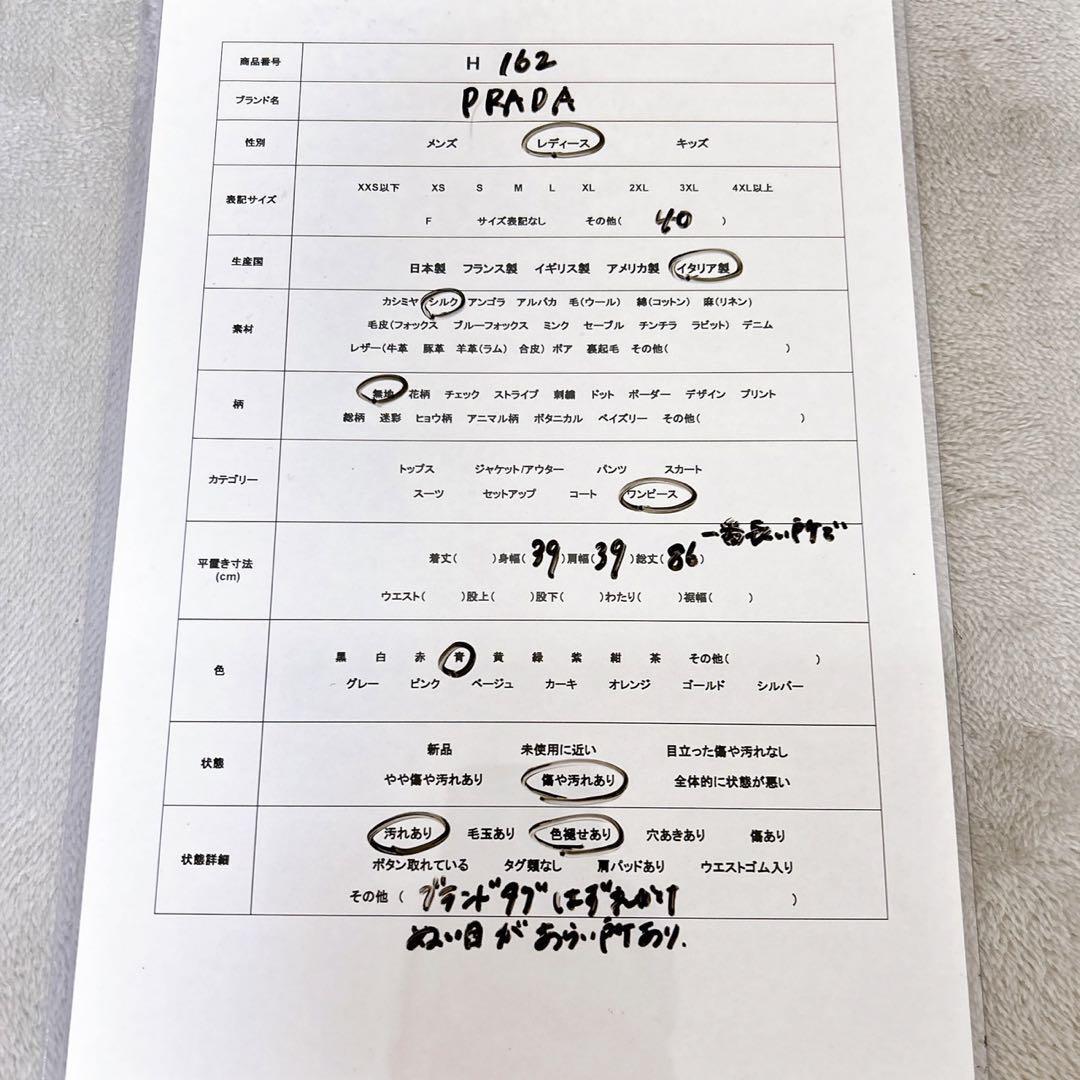 商品番号 H 162
ブランド名 PRADA
性別 メンズ レディース キッズ
XXS以下 XS S M L XL 2XL 3XL 4XL以上
表記サイズ
F サイズ表記なし その他( 40 )
生産国 日本製 フランス製 イギリス製 アメリカ製 イタリア製
カシミヤ シルク アンゴラ アルパカ 毛(ウール) 綿(コットン) 麻(リネン)
素材 毛皮(フォックス ブルーフォックス ミンク セーブル チンチラ ラビット) デニム
レザー(牛革 豚革 羊革(ラム) 合皮) ボア 裏起毛 その他( )
柄 無地 花柄 チェック ストライプ 刺繍 ドット ボーダー デザイン プリント
総柄 迷彩 ヒョウ柄 アニマル柄 ボタニカル ペイズリー その他( )
トップス ジャケット/アウター パンツ スカート
カテゴリー
スーツ セットアップ コート ワンピース
一番長い所で
平置き寸法 着丈( )身幅( 39 )肩幅( 39 )総丈( 86 )
(cm)
ウエスト( )股上( )股下( )わたり( )裾幅( )
色 黒 白 赤 青 黄 緑 紫 紺 茶 その他( )
グレー ピンク ベージュ カーキ オレンジ ゴールド シルバー
状態 新品 未使用に近い 目立った傷や汚れなし
やや傷や汚れあり 傷や汚れあり 全体的に状態が悪い
汚れあり 毛玉あり 色褪せあり 穴あきあり 傷あり
状態詳細 ボタン取れている タグ類なし 肩パッドあり ウエストゴム入り
その他 ( ブランドタグはずれかけ )
ぬい目があらい所あり.